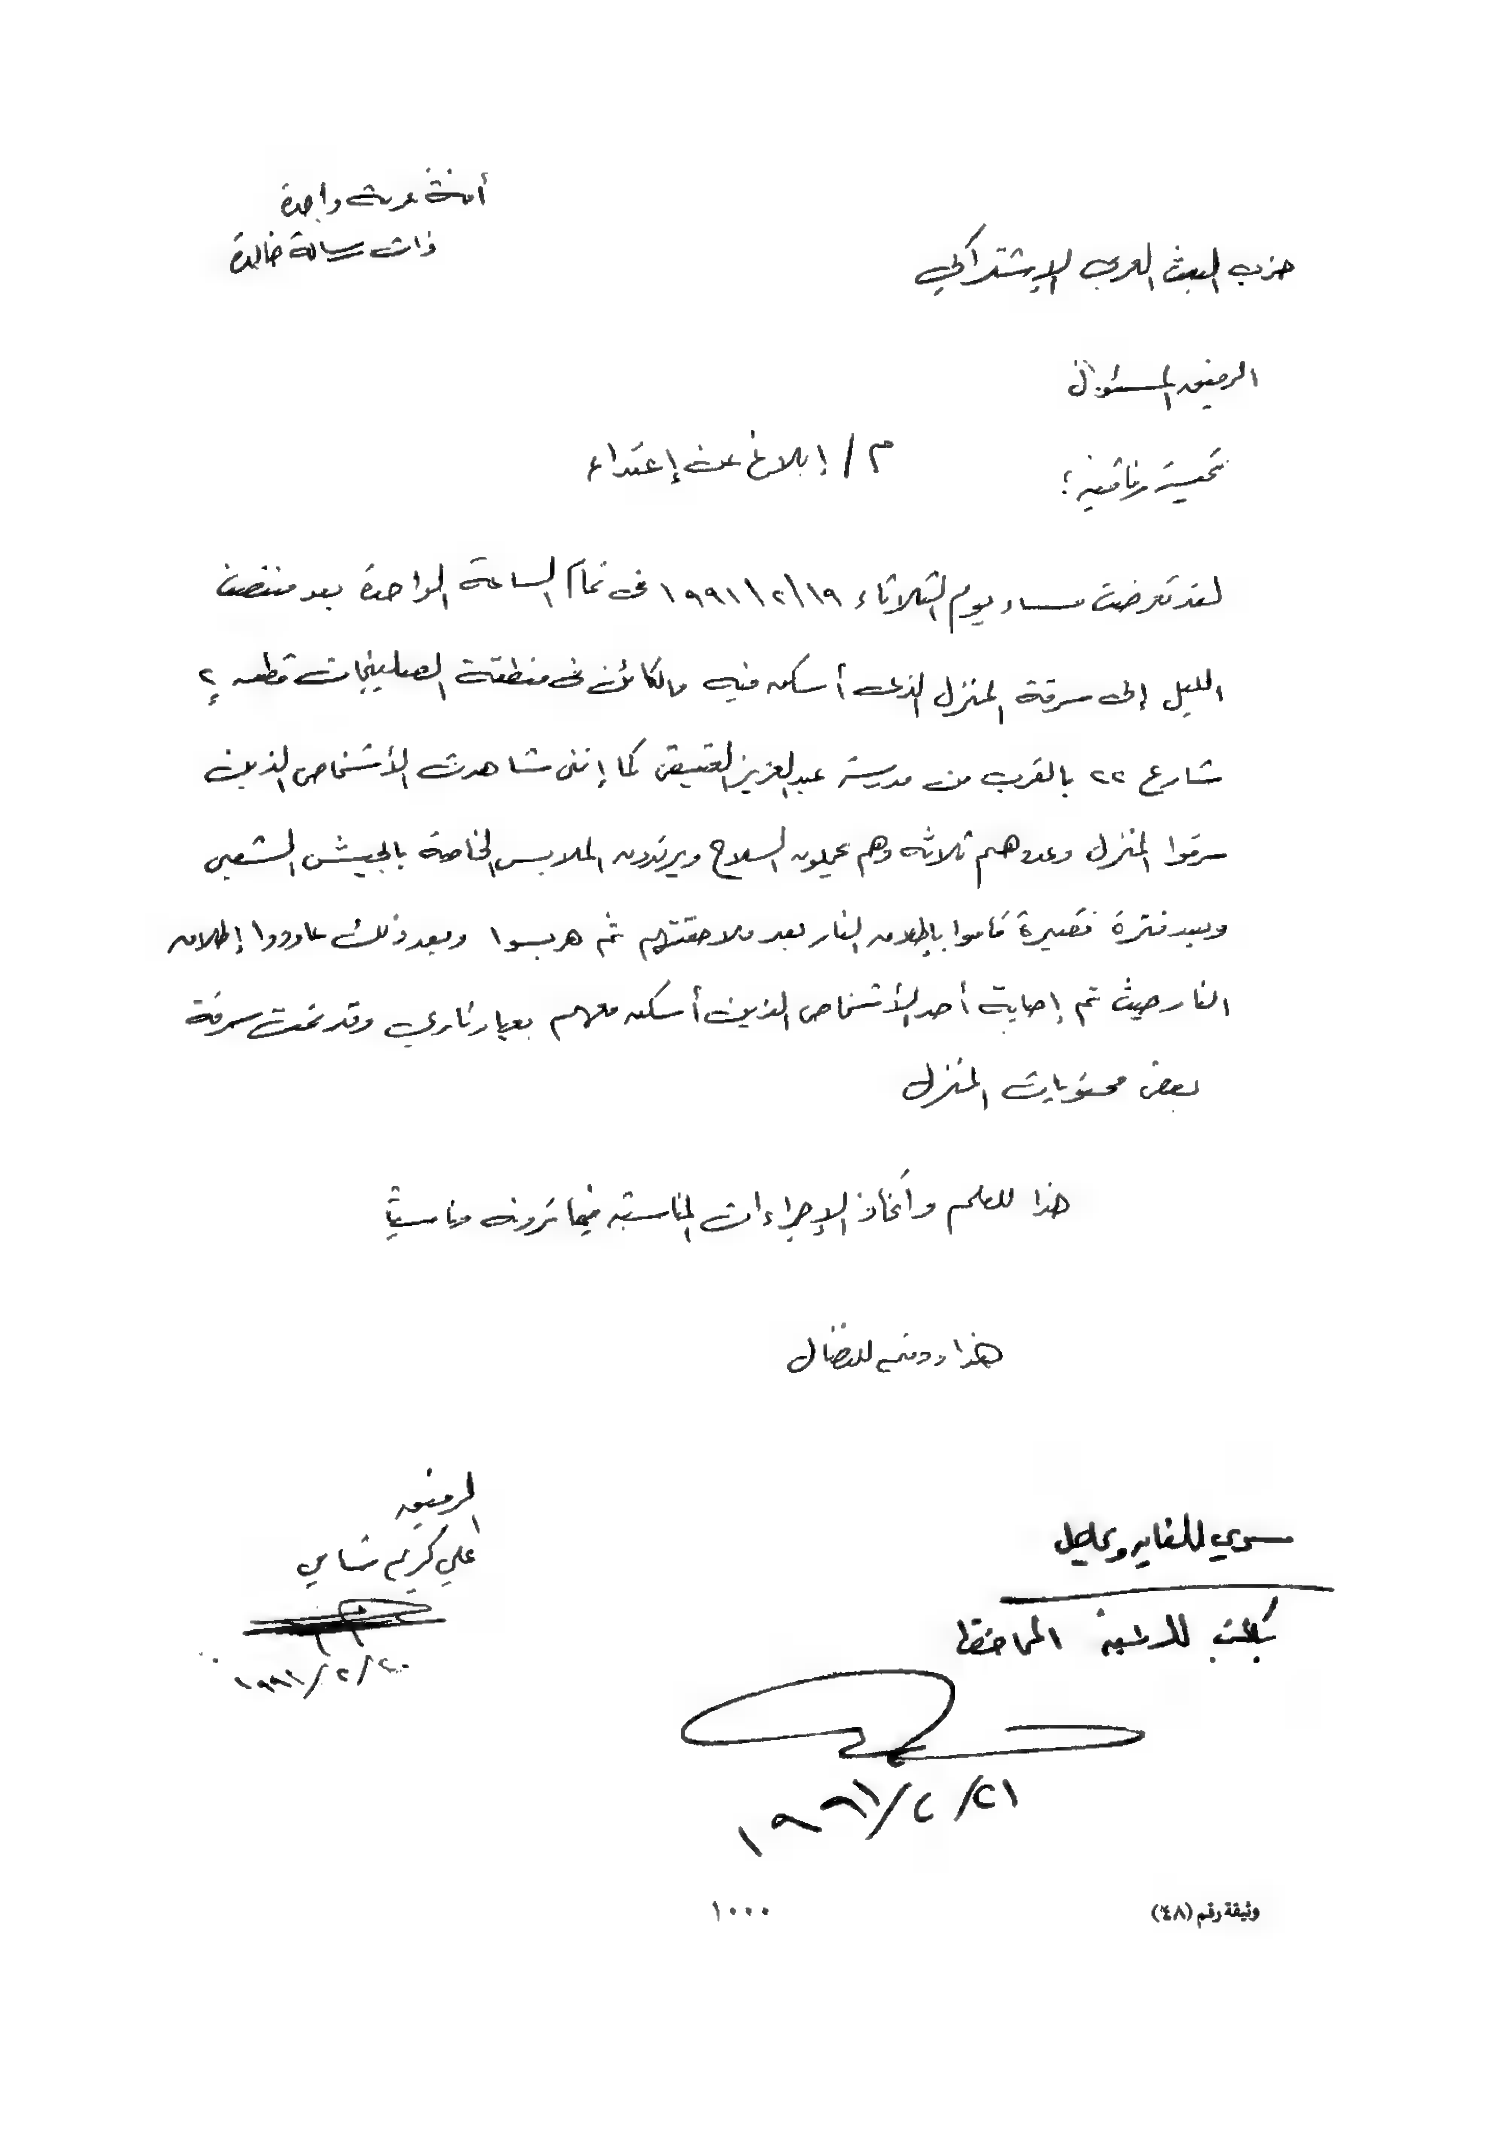 أمة عربية واحدة
ذات رسالة خالدة
حزب البعث العربي الإشتراكي
الرفيق المسئول
م/ إبلاغ عن إعتداء
تحية رفاقية ؛
لقد تعرضت مساء يوم الثلاثاء ١٩٩١/٢/١٩ في تمام الساعة الواحدة بعد منتصف
الليل إلى سرقة المنزل الذي أسكن فيه والكائن في منطقة الصليبخات قطعة ٤
شارع ٢٢ بالقرب من مدرسة عبدالعزيز العتيقي كما إنني شاهدت الأشخاص الذين
سرقوا المنزل وعددهم ثلاثة وهم يحملون السلاح ويرتدون الملابس الخاصة بالجيش الشعبي
وبعد فترة قصيرة قاموا بإطلاق النار بعد ملاحقتهم ثم هربوا وبعد ذلك عاودوا إطلاق
النار حيث تم إصابة أحد الأشخاص الذين أسكن معهم بعيار ناري وقد تمت سرقة
بعض محتويات المنزل
هذا للعلم وأتخاذ الإجراءات المناسبة فيما ترونه مناسباً
هذا ودمتم للنضال
الرفيق
علي كريم شامي
١٩٩١/٢/٢٠
سري للغاية
١٩٩١/٢/٢١
وثيقة رقم (٤٨)
١٠٠٠